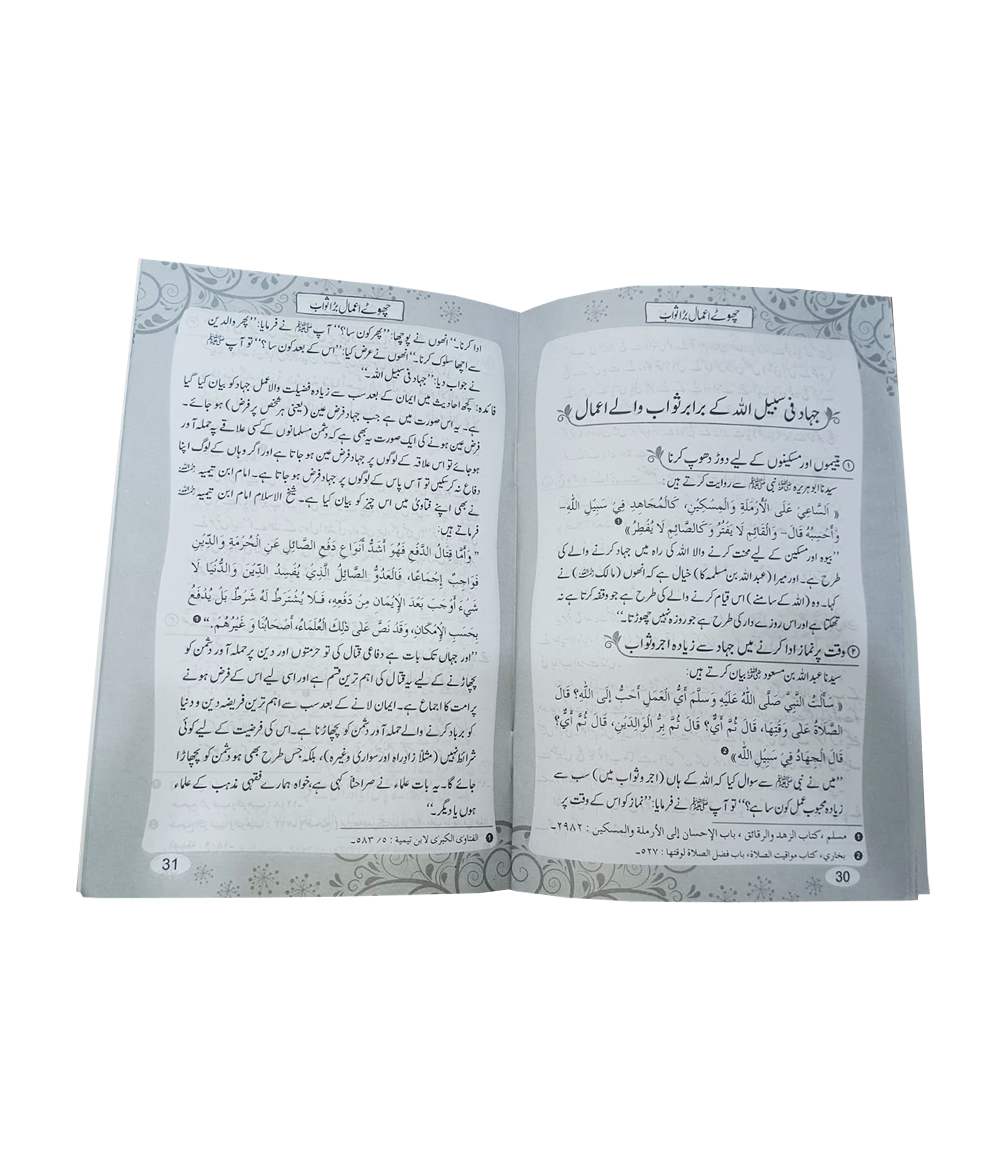 چھوٹے اعمال بڑا ثواب
جہاد فی سبیل اللہ کے برابر ثواب والے اعمال
① یتیموں اور مسکینوں کے لیے دوڑ دھوپ کرنا
سیدنا ابو ہریرہ رضی اللہ عنہ نبی ﷺ سے روایت کرتے ہیں:
« اَلسَّاعِيْ عَلَى الْأَرْمَلَةِ وَالْمِسْكِيْنِ، كَالْمُجَاهِدِ فِيْ سَبِيْلِ اللّٰهِ۔
وَأَحْسِبُهُ قَالَ۔ وَالْقَائِمِ لَا يَفْتُرُ وَكَالصَّائِمِ لَا يُفْطِرُ » ❶
’’بیوہ اور مسکین کے لیے محنت کرنے والا اللہ کی راہ میں جہاد کرنے والے کی
طرح ہے۔ اور میرا (عبد اللہ بن مسلمہ کا) خیال ہے کہ انھوں (مالک رحمہ اللہ) نے
کہا۔ وہ (اللہ کے سامنے) اس قیام کرنے والے کی طرح ہے جو وقفہ کرتا ہے نہ
تھکتا ہے اور اس روزے دار کی طرح ہے جو روزہ نہیں چھوڑتا۔‘‘
② وقت پر نماز ادا کرنے میں جہاد سے زیادہ اجر و ثواب
سیدنا عبد اللہ بن مسعود رضی اللہ عنہ بیان کرتے ہیں:
« سَأَلْتُ النَّبِيَّ صَلَّى اللّٰهُ عَلَيْهِ وَسَلَّمَ أَيُّ الْعَمَلِ أَحَبُّ إِلَى اللّٰهِ؟ قَالَ
الصَّلَاةُ عَلٰى وَقْتِهَا، قَالَ ثُمَّ أَيٌّ؟ قَالَ ثُمَّ بِرُّ الْوَالِدَيْنِ، قَالَ ثُمَّ أَيٌّ؟
قَالَ الْجِهَادُ فِيْ سَبِيْلِ اللّٰه » ❷
’’میں نے نبی ﷺ سے سوال کیا کہ اللہ کے ہاں (اجر و ثواب میں) سب سے
زیادہ محبوب عمل کون سا ہے؟‘‘ تو آپ ﷺ نے فرمایا: ’’نماز کو اس کے وقت پر
❶ مسلم، کتاب الزهد والرقائق، باب الإحسان إلى الأرملة والمسکین : ۲۹۸۲۔
❷ بخاری، کتاب مواقيت الصلاة، باب فضل الصلاة لوقتها : ۵۲۷۔
30
چھوٹے اعمال بڑا ثواب
ادا کرنا۔‘‘ انھوں نے پوچھا: ’’پھر کون سا؟‘‘ آپ ﷺ نے فرمایا: ’’پھر والدین
سے اچھا سلوک کرنا۔‘‘ انھوں نے عرض کیا: ’’اس کے بعد کون سا؟‘‘ تو آپ ﷺ
نے جواب دیا: ’’جہاد فی سبیل اللہ۔‘‘
فائدہ: کچھ احادیث میں ایمان کے بعد سب سے زیادہ فضیلت والا عمل جہاد کو بیان کیا گیا
ہے۔ یہ اس صورت میں ہے جب جہاد فرض عین (یعنی ہر شخص پر فرض) ہو جائے۔
فرض عین ہونے کی ایک صورت یہ بھی ہے کہ دشمن مسلمانوں کے کسی علاقے پہ حملہ آور
ہو جائے تو اس علاقہ کے لوگوں پر جہاد فرض عین ہو جاتا ہے اور اگر وہاں کے لوگ اپنا
دفاع نہ کر سکیں تو آس پاس کے لوگوں پر جہاد فرض ہو جاتا ہے۔ امام ابن تیمیہ رحمہ اللہ
نے بھی اپنے فتاویٰ میں اس چیز کو بیان کیا ہے۔ شیخ الاسلام امام ابن تیمیہ رحمہ اللہ
فرماتے ہیں:
’’ وَأَمَّا قِتَالُ الدَّفْعِ فَهُوَ أَشَدُّ أَنْوَاعِ دَفْعِ الصَّائِلِ عَنِ الْحُرْمَةِ وَالدِّيْنِ
فَوَاجِبٌ إِجْمَاعًا، فَالْعَدُوُّ الصَّائِلُ الَّذِيْ يُفْسِدُ الدِّيْنَ وَالدُّنْيَا لَا
شَيْءَ أَوْجَبَ بَعْدَ الْإِيْمَانِ مِنْ دَفْعِهِ، فَلَا يُشْتَرَطُ لَهُ شَرْطٌ بَلْ يُدْفَعُ
بِحَسَبِ الْإِمْكَانِ، وَقَدْ نَصَّ عَلٰى ذٰلِكَ الْعُلَمَاءُ، أَصْحَابُنَا وَ غَيْرُهُمْ.‘‘ ❶
’’اور جہاں تک بات ہے دفاعی قتال کی تو حرمتوں اور دین پر حملہ آور دشمن کو
پچھاڑنے کے لیے یہ قتال کی اہم ترین قسم ہے اور اسی لیے اس کے فرض ہونے
پر امت کا اجماع ہے۔ ایمان لانے کے بعد سب سے اہم ترین فریضہ دین و دنیا
کو برباد کرنے والے حملہ آور دشمن کو پچھاڑنا ہے۔ اس کی فرضیت کے لیے کوئی
شرائط نہیں (مثلاً زادِ راہ اور سواری وغیرہ)، بلکہ جس طرح بھی ہو دشمن کو پچھاڑا
جائے گا۔ یہ بات علماء نے صراحتاً کہی ہے، خواہ ہمارے فقہی مذہب کے علماء
ہوں یا دیگر۔‘‘
❶ الفتاوى الكبرى لابن تيمية : ۵/ ۵۸۳۔
31